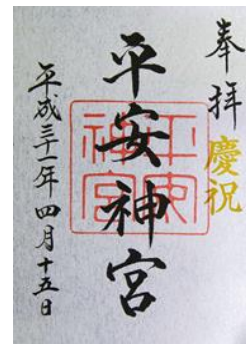 奉拝
慶祝
平安神宮
平安神宮
平成三十一年四月十五日